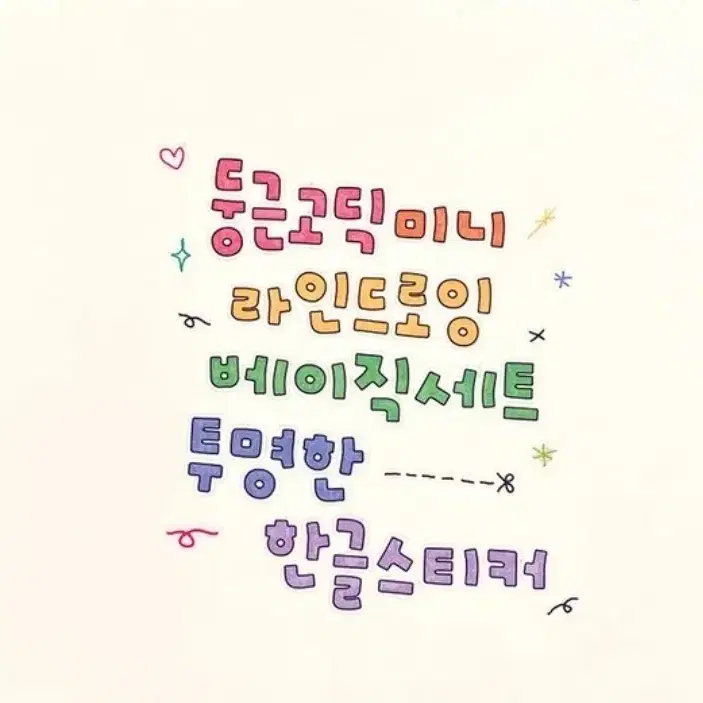 둥근고딕미니
라인드로잉
베이직세트
투명한
한글스티커